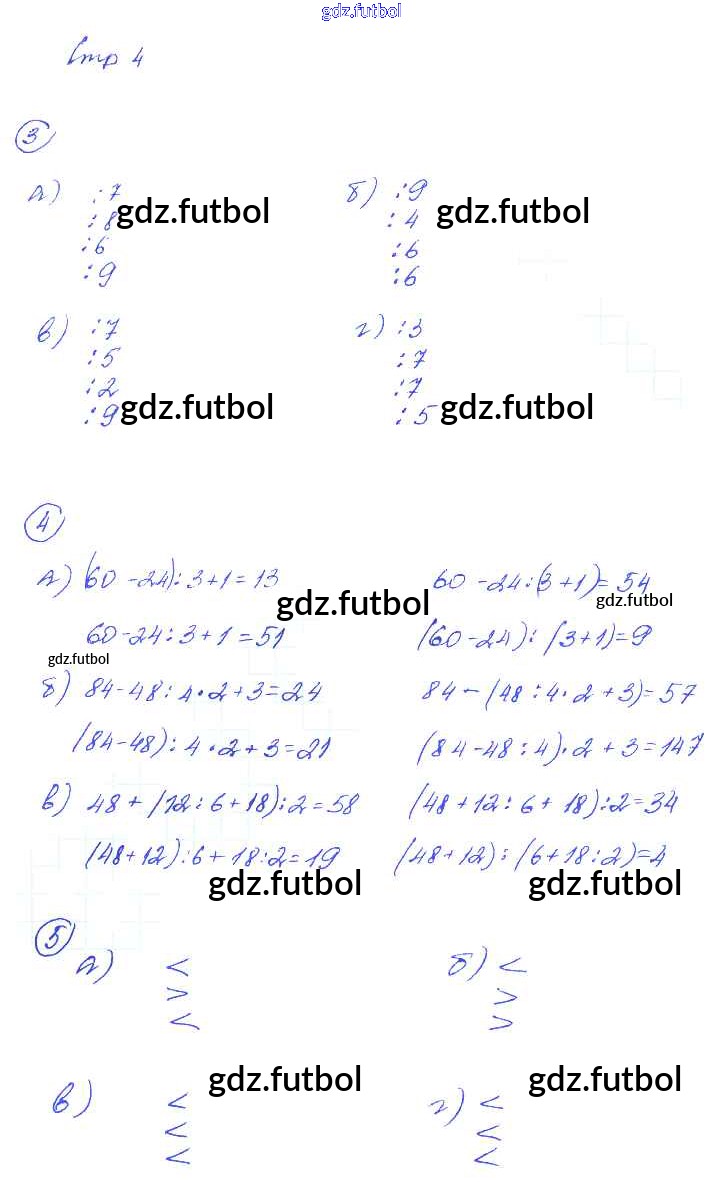 gdz.futbol
Стр 4
3
а) :7 б) :9
gdz.futbol gdz.futbol
:8 :4
:6 :6
:9 :6
в) :7 г) :3
:5 :7
:2 :7
:9 gdz.futbol :5 gdz.futbol
4
а) (60-24):3+1=13 60-24:(3+1)=54
gdz.futbol gdz.futbol
60-24:3+1=51 (60-24):(3+1)=9
gdz.futbol
б) 84-48:4·2+3=24 84-(48:4·2+3)=57
(84-48):4·2+3=21 (84-48:4)·2+3=147
в) 48+(12:6+18):2=58 (48+12:6+18):2=34
(48+12):6+18:2=19 (48+12):(6+18:2)=4
gdz.futbol gdz.futbol
5
а) < б) <
> >
< >
gdz.futbol gdz.futbol
в) < г) <
< <
< <